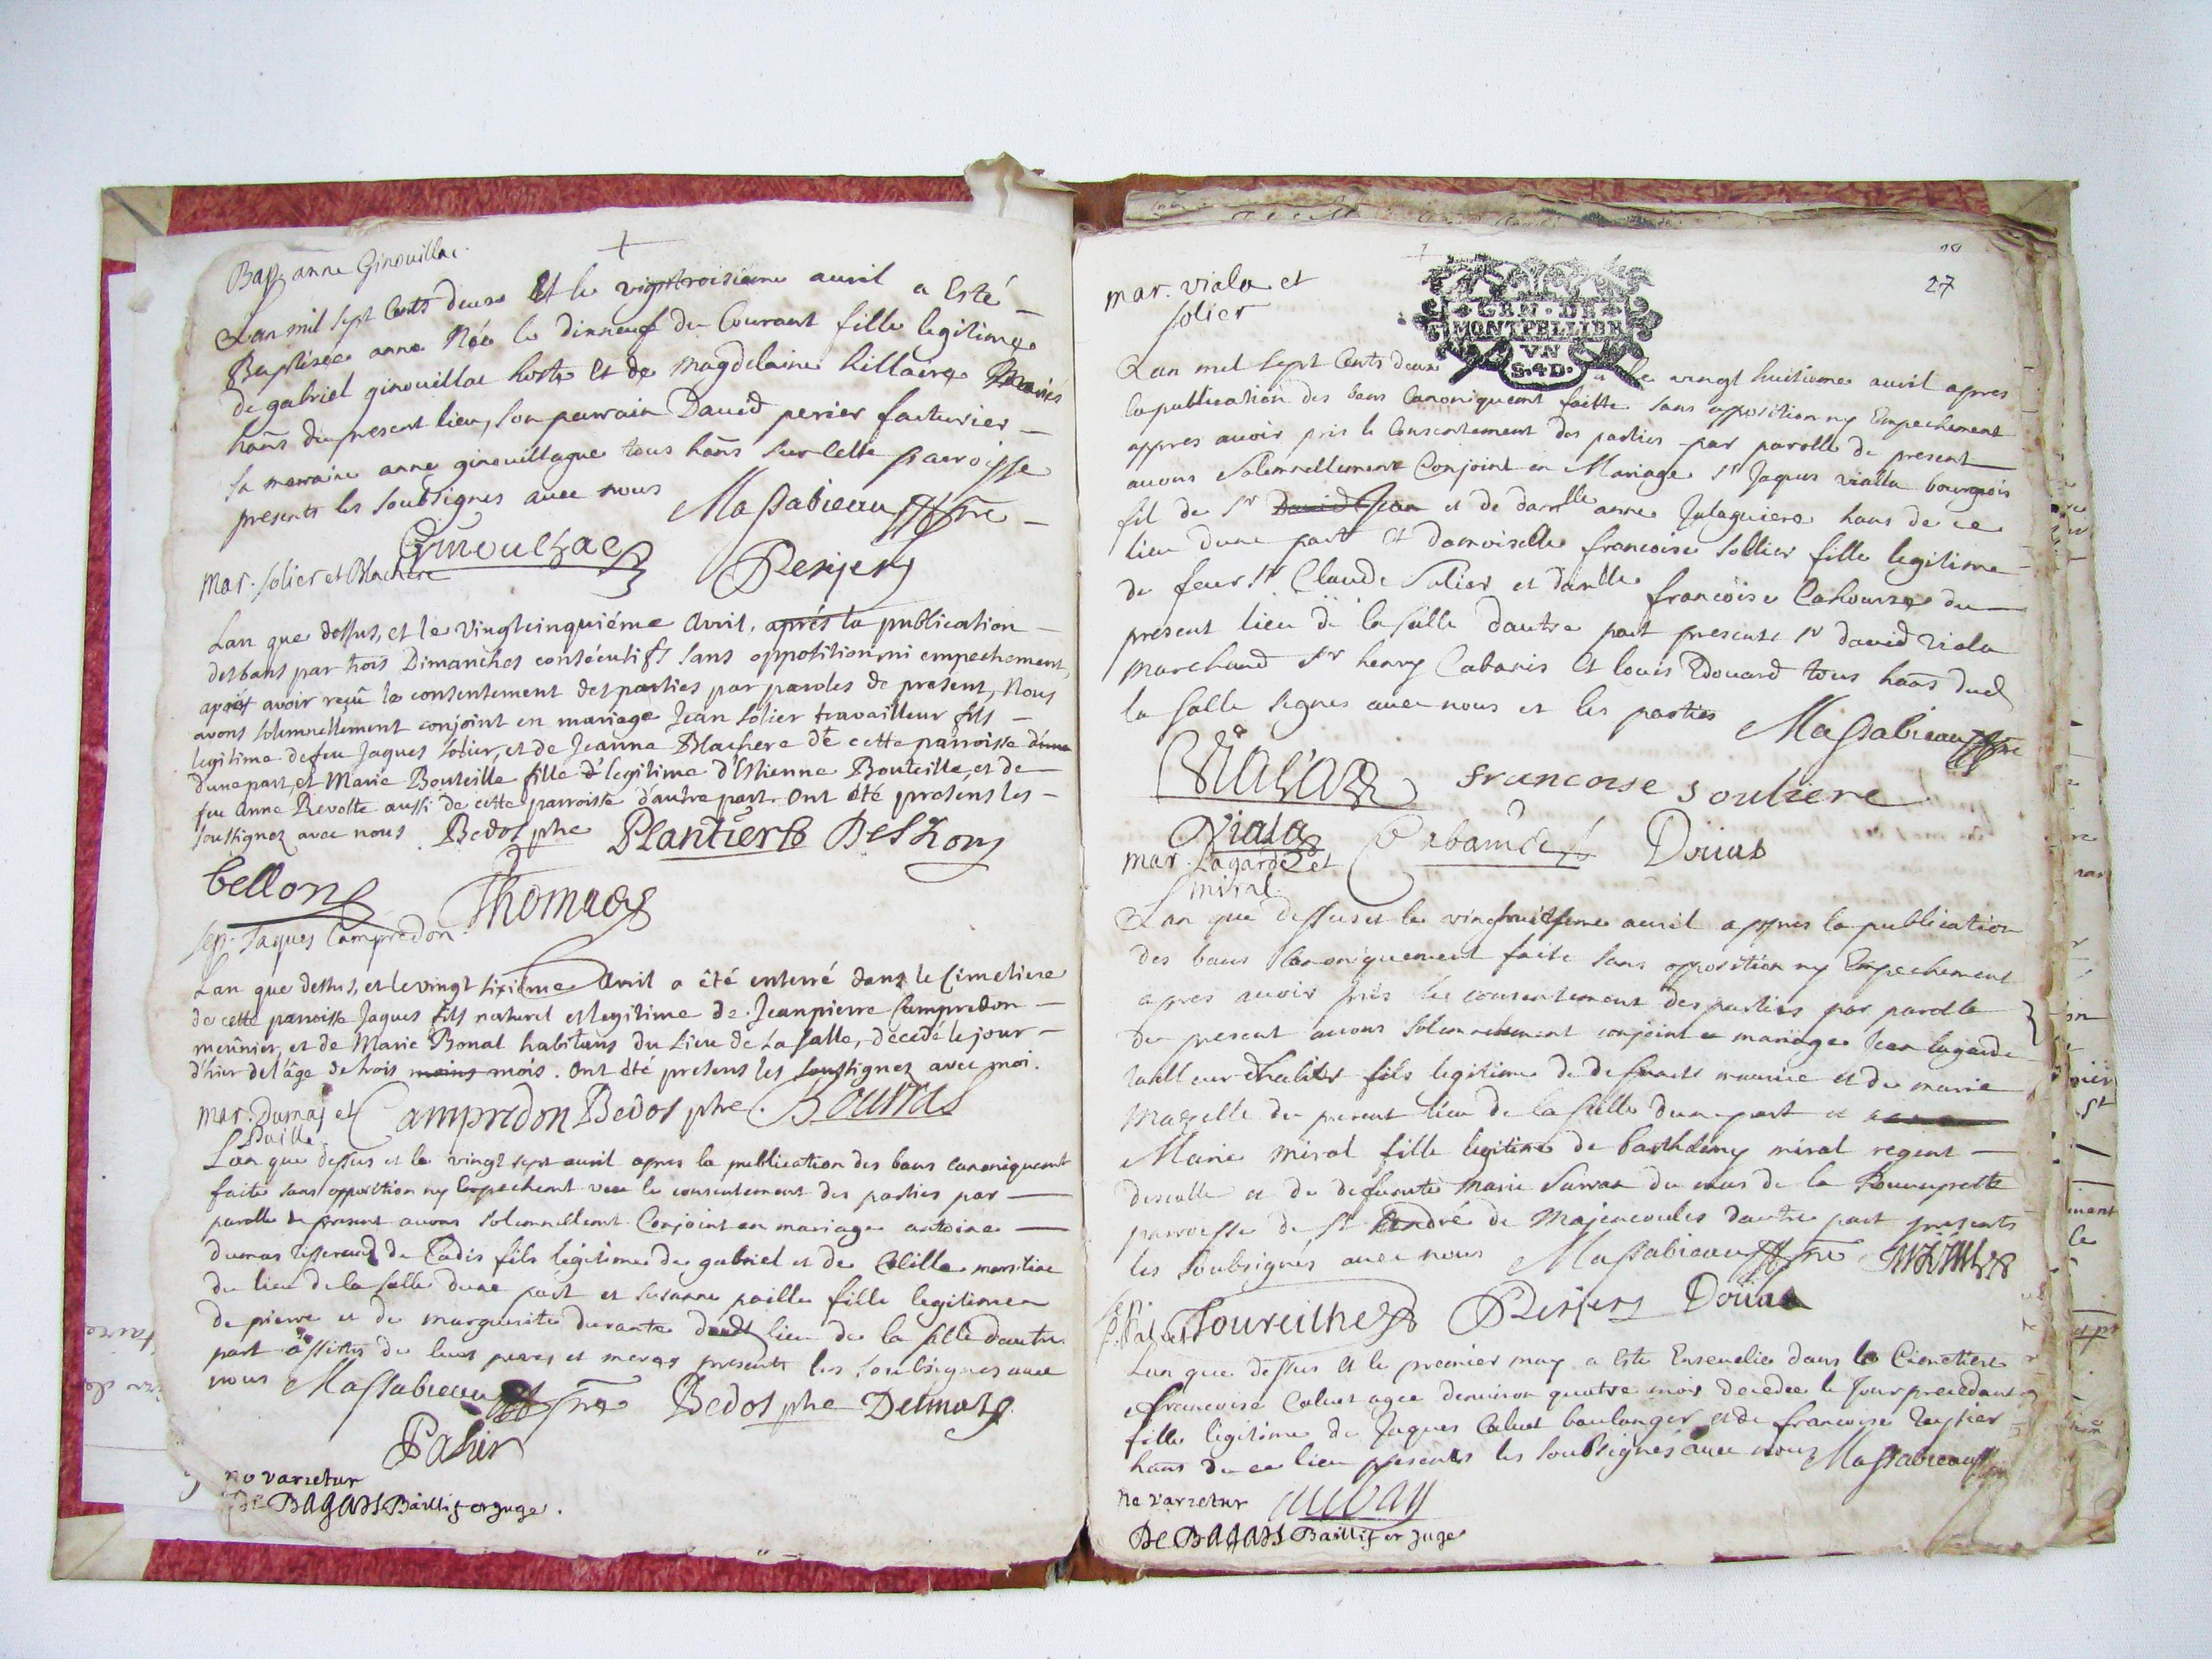 Bap. anne Ginouillac.
Lan mil sept Cents deux Et le vigtroisieme auril a Esté
Baptisée anne Née le dixneuf du Courant fille legitime
de gabriel ginouillac hoste Et de magdelaine hillaire Mariés
hans du present lieu, son parrain Dauid perier facturier
sa marraine anne ginouillaque tous hans sur cette parroisse
presents les soubsignes auec nous Massabieau ptre
Ginouilhac Perier
mar. solier et Blachere
Lan que dessus, et le Vingtcinquiéme Avril, aprés la publication
des bans par trois Dimanches consécutifs sans opposition, ni empechement,
aprés avoir reçû le consentement des parties par paroles de present, Nous
avons solemnellement conjoint en mariage Jean Solier travailleur fils
legitime defeu Jaques Solier, et de Jeanne Blachere de cette parroisse
dune part, et Marie Bouteille fille legitime d'Estienne Bouteille, et de
feu Anne Revolte aussi de cette parroisse d'autre part. Ont été presens les
soussignez avec nous. Bedos ptre Plantier Deshons
Bellon Thomas
sep. Jaques Campredon.
Lan que dessus, et le vingt sixième Avril a été enterré dans le Cimetiere
de cette parroisse Jaques fils naturel et legitime de Jeanpierre Campredon
meûnier, et de Marie Bonal habitans du Lieu de La Salle, décedé le jour
d'hier del'âge de trois moins mois. Ont été presens les soussignez avec moi.
Campredon Bedos ptre. Bourras
mar. Dumas et
Paille
Lan que dessus et le vingt sept auril apres la publication des bans canoniquemt
faite sans opposition ny Empechemt veu le consentement des parties par
parolle de present auons solemnellemt Conjoint en mariage antoine
dumas tisserand de Cadis fils legitime de gabriel et de
du lieu de la salle dune part et susanne paille fille legitime
de pierre et de marguerite durante dudt lieu de la salle dautre
part assistés de leurs peres et meres presents les soubsignes auec
nous Massabieau ptre Bedos ptre Delmas
ne varietur
De Bagars Baillif et juge.
27
mar. viala et
solier
GEN. DE
MONTPELLIER
VN
S. 4 D.
Lan mil sept Cents deux le vingt huitieme auril apres
la publication des bans Canoniquemt faitte sans opposition ny Empechement
appres auoir pris le Consentement des parties par parolle de present
auons solemnellement Conjoint en Mariage Sr Jaques vialla bourgois
fil de Sr Dauid Jean et de damlle anne Julaguiere hans de ce
lieu dune part Et damoiselle francoise sollier fille legitime
de feu Sr Claude Solier et damlle francoise Cahours du
present lieu de la salle dautre part presents Sr dauid viala
marchand Sr henry Cabanis et louis Edouard tous hans dud
la salle signes auec nous et les parties Massabieau ptre
Viala francoise souliere
Viala Cabanis Douas
mar. Lagarde et
miral.
Lan que dessus et le vinghuitieme auril appres la publication
des bans Canoniquement faite sans opposition ny Empechement
apres auoir pris le consentement des parties par parolle
de present auons solemnellement conjoint en mariage Jean lagarde
tailleur dhabits fils legitime de defunct maurice et de marie
Mazelle du present lieu de la salle dune part et
Marie miral fille legitime de barthelemy miral regent
descolle et de defunte marie sarran du mas de la
parroisse de St André de Majencoules dautre part presents
les soubsignés auec nous Massabieau ptre
Soureilhe Perier Douas
Lan que dessus Et le premier may a este Enseuelie dans le Cimetiere
francoise Caluet agee denuiron quatre mois decedee le jour precedant
fille legitime de Jaques Caluet boulanger et de francoise
hans de ce lieu presents les soubsignés auec nous Massabieau
ne varietur
De Bagars Baillif et juge